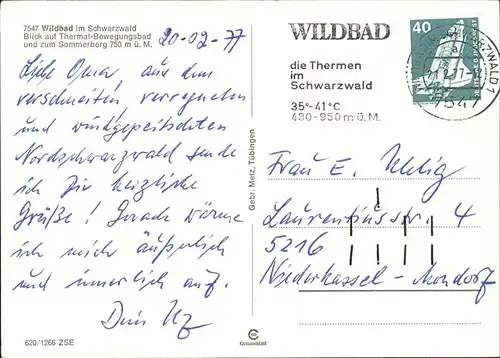 7547 Wildbad im Schwarzwald
Blick auf Thermal-Bewegungsbad
und zum Sommerberg 750 m ü. M.
20-02-77
Liebe Oma, aus dem
verschneiten, verregneten
und windgepeitschten
Nordschwarzwald sende
ich Dir herzliche
Grüße! Gerade wärme
ich mich äußerlich
und innerlich auf.
Dein
620/1266 ZSE
Gebr. Metz, Tübingen
WILDBAD
die Thermen
im
Schwarzwald
35°-41°C
430-950 m ü. M.
40
7547
Frau E. Uhlig
Laurentiusstr. 4
5216
Niederkassel-Mondorf